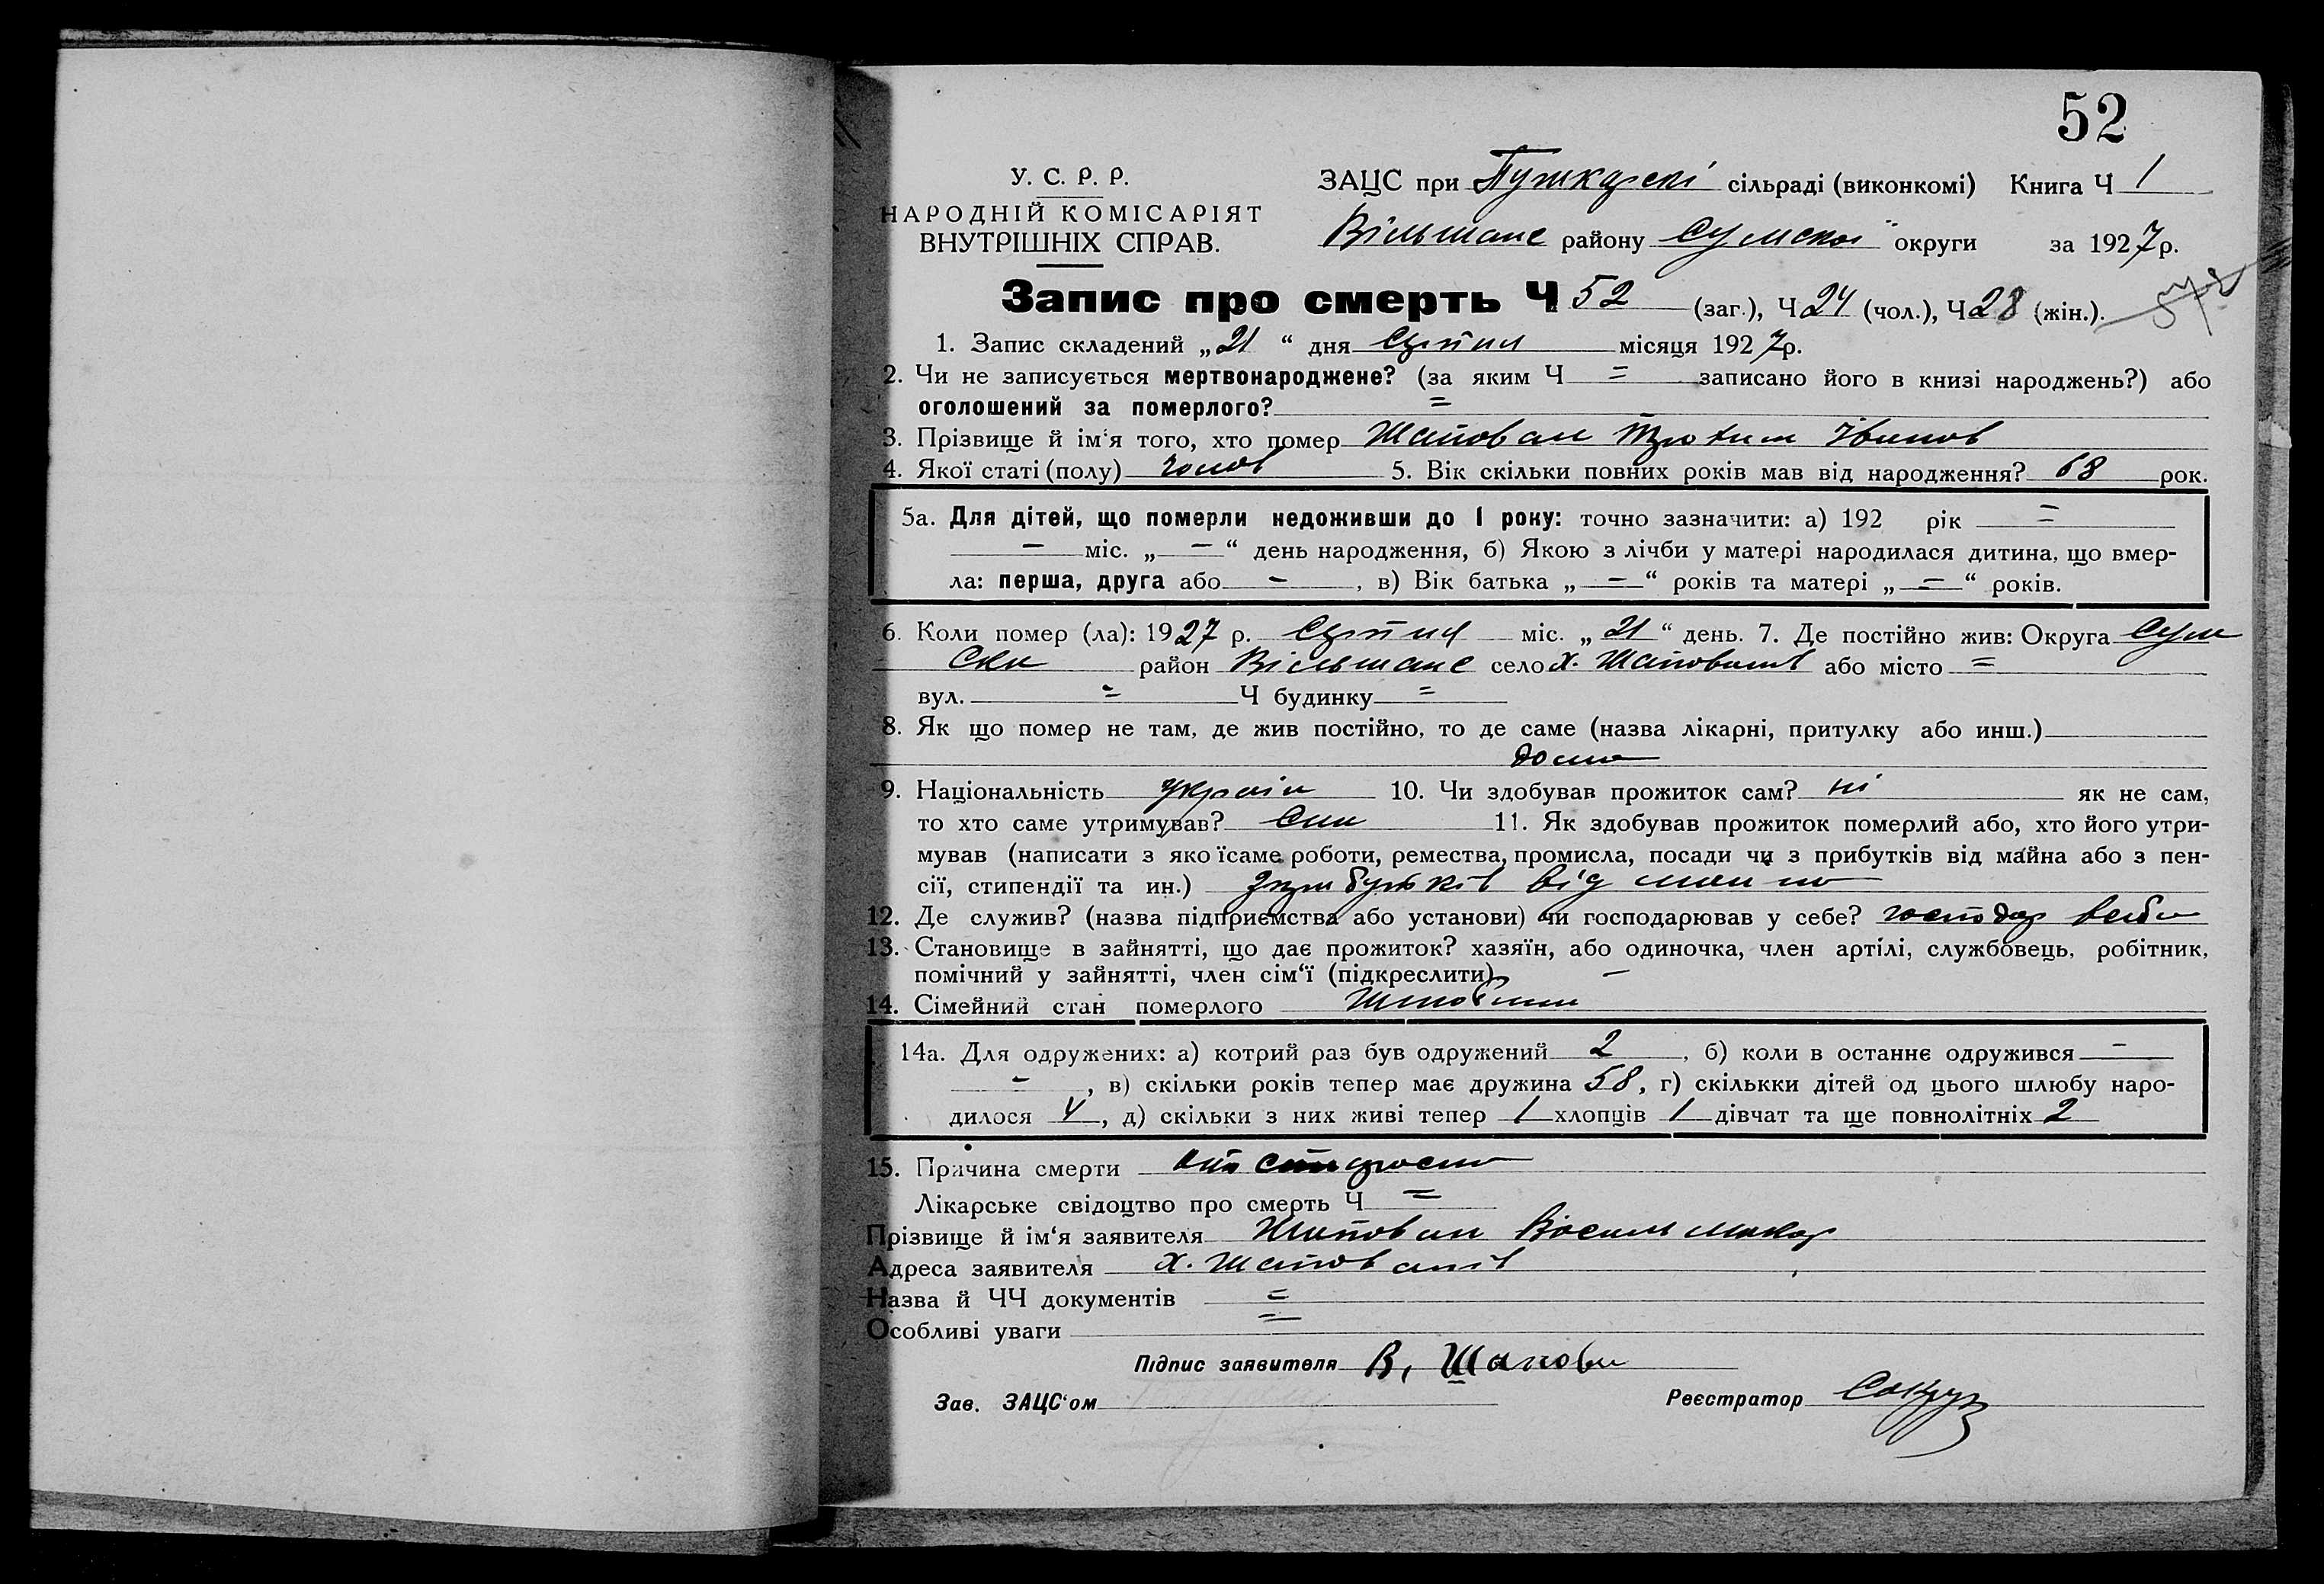 52
У. С. Р. Р.
НАРОДНІЙ КОМІСАРІЯТ
ВНУТРІШНІХ СПРАВ.
ЗАЦС при Пушкарскі сільраді (виконкомі) Книга Ч 1
Вільшане району Сумскої округи за 1927 р.
Запис про смерть Ч 52 (заг.), Ч 24 (чол.), Ч 28 (жін.).
1. Запис складений „21“ дня Серпня місяця 1927 р.
2. Чи не записується мертвонароджене? (за яким Ч = записано його в книзі народжень?) або
оголошений за померлого? =
3. Прізвище й ім‘я того, хто помер Шаповал Іванов
4. Якої статі (полу) чолов 5. Вік скільки повних років мав від народження? 68 рок.
5а. Для дітей, що померли недоживши до 1 року: точно зазначити: а) 192 рік =
– міс. „–“ день народження, б) Якою з лічби у матері народилася дитина, що вмер-
ла: перша, друга або –, в) Вік батька „–“ років та матері „=“ років.
6. Коли помер (ла): 1927 р. Серпня міс. „21“ день. 7. Де постійно жив: Округа Сум
ска район Вільшане село х. Шаповалів або місто =
вул. = Ч будинку =
8. Як що помер не там, де жив постійно, то де саме (назва лікарні, притулку або инш.)
дома
9. Національність україн 10. Чи здобував прожиток сам? ні як не сам,
то хто саме утримував? Син 11. Як здобував прожиток померлий або, хто його утри-
мував (написати з якоїсаме роботи, ремества, промисла, посади чи з прибутків від майна або з пен-
сії, стипендії та ин.) з прибутків від майна
12. Де служив? (назва підприємства або установи) чи господарював у себе? господар в себе
13. Становище в зайнятті, що дає прожиток? хазяїн, або одиночка, член артілі, службовець, робітник,
помічний у зайнятті, член сім‘ї (підкреслити) –
14. Сімейний стан померлого
14а. Для одружених: а) котрий раз був одружений 2, б) коли в останнє одружився –
–, в) скільки років тепер має дружина 58, г) скількки дітей од цього шлюбу наро-
дилося 4, д) скільки з них живі тепер 1 хлопців 1 дівчат та ще повнолітніх 2
15. Причина смерти від старости
Лікарське свідоцтво про смерть Ч =
Прізвище й ім‘я заявителя Шаповал Василь Макар
Адреса заявителя х. Шаповалів
Назва й ЧЧ документів =
Особливі уваги =
Підпис заявителя В. Шаповал
Зав. ЗАЦС‘ом
Реєстратор